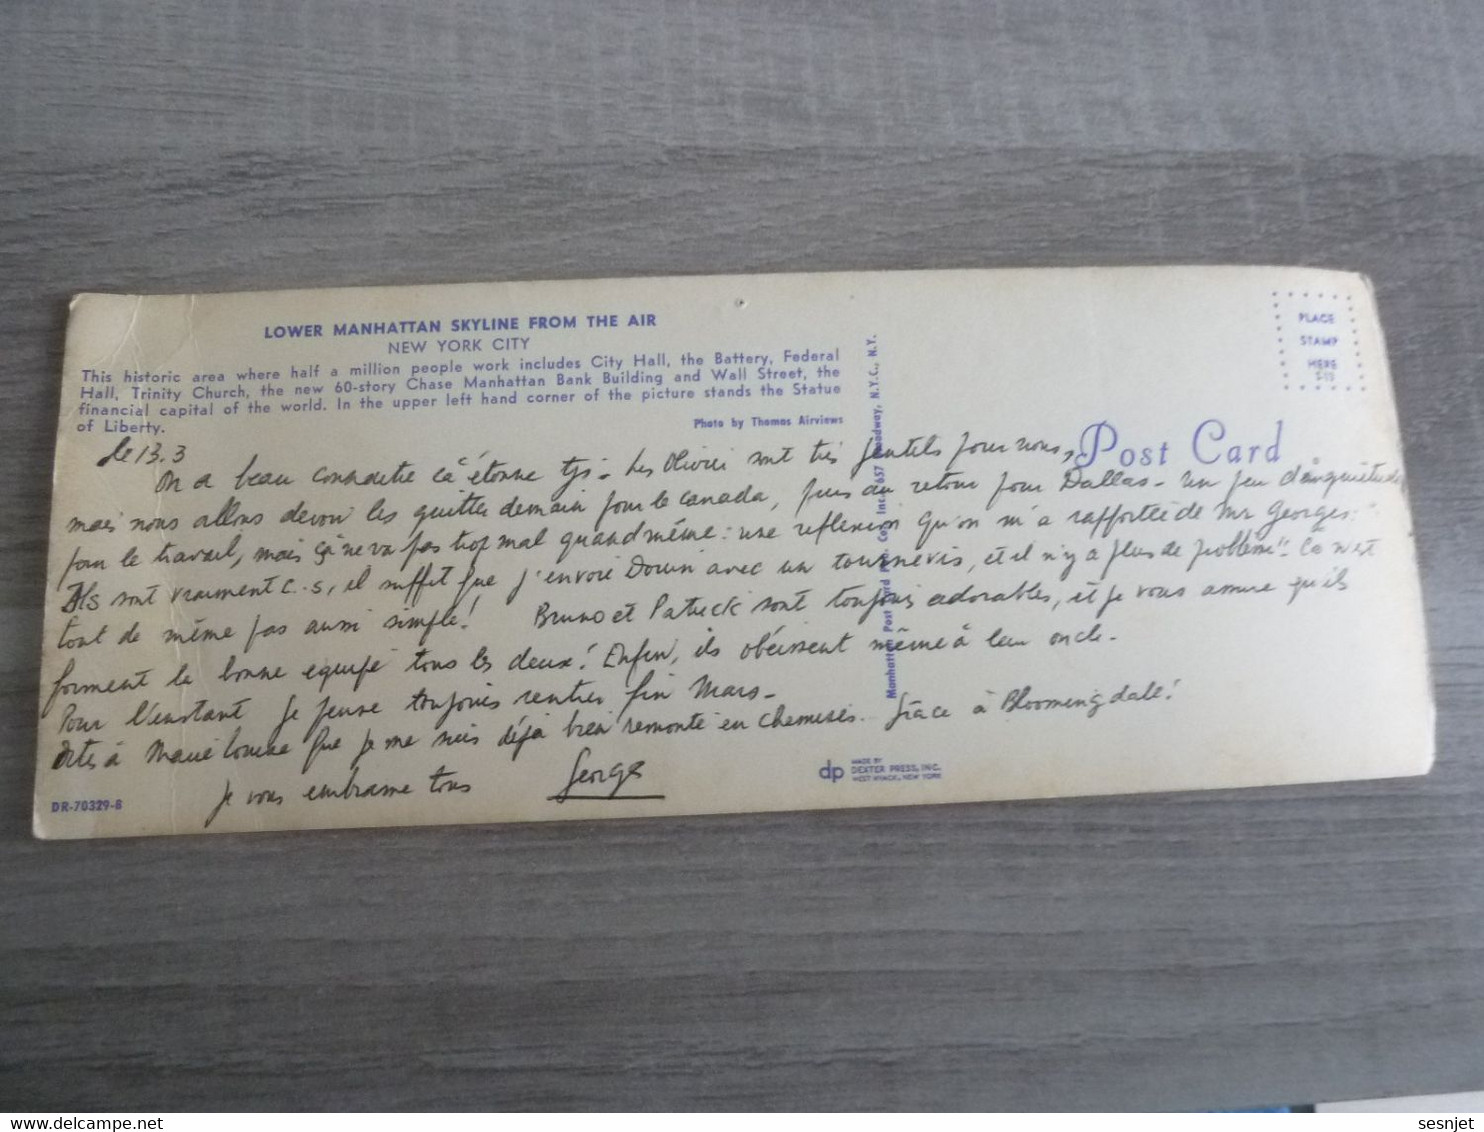 LOWER MANHATTAN SKYLINE FROM THE AIR
NEW YORK CITY
This historic area where half a million people work includes City Hall, the Battery, Federal
Hall, Trinity Church, the new 60-story Chase Manhattan Bank Building and Wall Street, the
financial capital of the world. In the upper left hand corner of the picture stands the Statue
of Liberty.
Photo by Thomas Airviews
Manhattan Post Card Pub. Co., Inc., 657 Broadway, N.Y.C., N.Y.
PLACE
STAMP
HERE
Post Card
le 13.3
On a beau connaitre ça étonne tjs. Les Olivier sont très gentils pour nous,
mais nous allons devoir les quitter demain pour le Canada, puis au retour pour Dallas. Un peu d'inquiétude
pour le travail, mais ça ne va pas trop mal quand même : une reflexion qu'on m'a rapportée de Mr Georges :
"Ils sont vraiment c.s, il suffit que j'envoie Douin avec un tournevis, et il n'y a plus de problème". Ce n'est
tout de même pas aussi simple! Bruno et Patrick sont toujours adorables, et je vous assure qu'ils
forment la bonne equipe tous les deux! Enfin, ils obéissent même à leur oncle.
Pour l'instant je pense toujours rentrer fin Mars.
Dites à Marie Louise que je me suis déjà bien remonté en chemises. Grâce à Bloomingdale!
Je vous embrasse tous George
DR-70329-B
dp MADE BY
DEXTER PRESS, INC.
WEST NYACK, NEW YORK
sesnjet